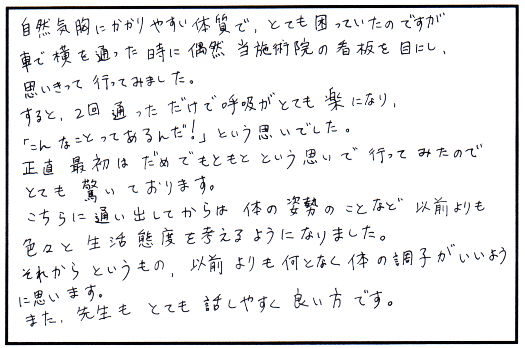 自然気胸にかかりやすい体質で、とても困っていたのですが
車で横を通った時に偶然当施術院の看板を目にし、
思いきって行ってみました。
すると、2回通っただけで呼吸がとても楽になり、
「こんなことってあるんだ!」という思いでした。
正直最初はだめでもともとという思いで行ってみたので
とても驚いております。
こちらに通い出してからは体の姿勢のことなど以前よりも
色々と生活態度を考えるようになりました。
それからというもの、以前よりも何となく体の調子がいいよう
に思います。
また、先生もとても話しやすく良い方です。